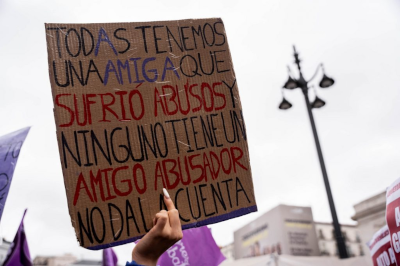 TODAS TENEMOS
UNA AMIGA QUE
SUFRIÓ ABUSOS Y
NINGUNO TIENE UN
AMIGO ABUSADOR
NO DA LA CUENTA